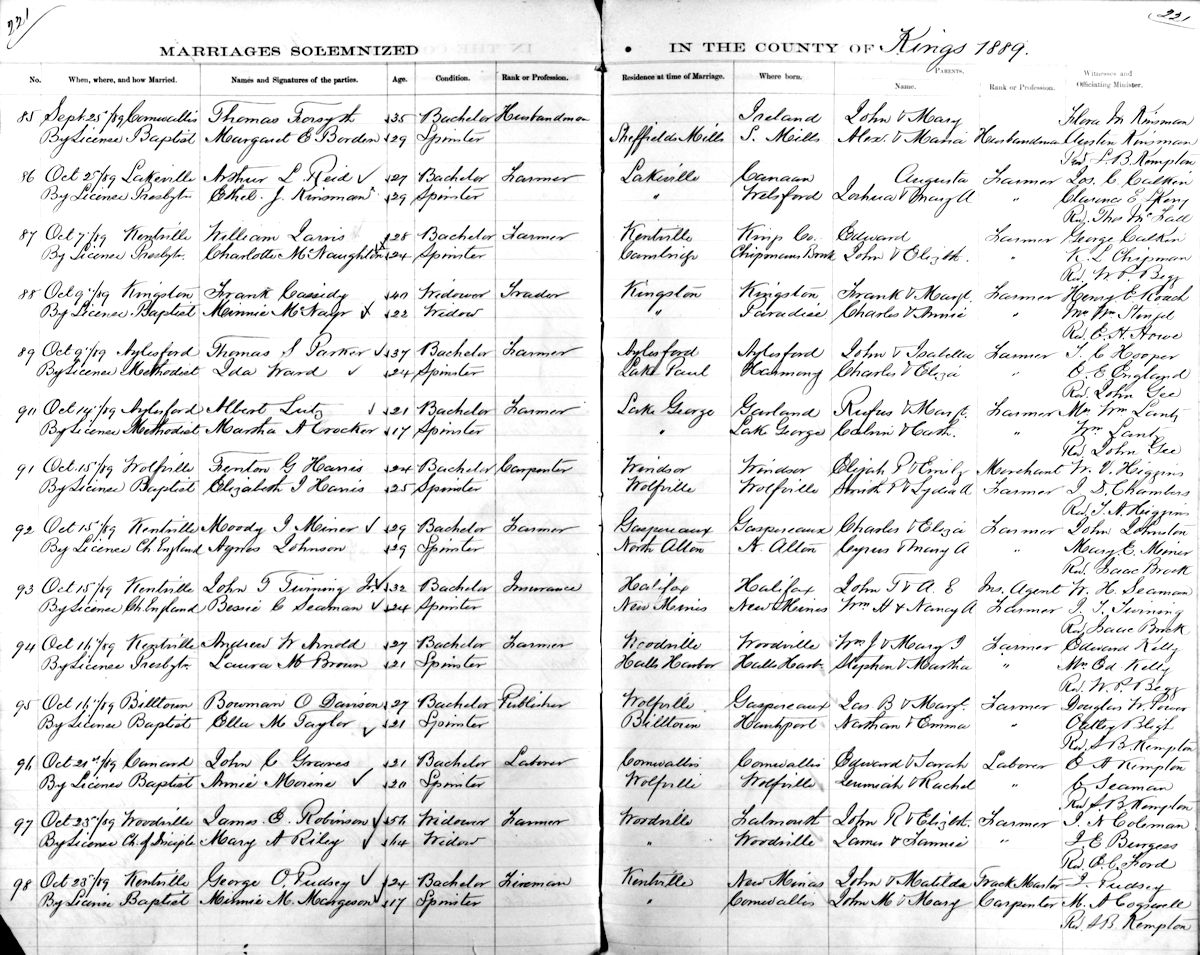 221
221
MARRIAGES SOLEMNIZED IN THE COUNTY OF Kings 1889.
No. When, where, and how Married. Names and Signatures of the parties. Age. Condition. Rank or Profession. Residence at time of Marriage. Where born. PARENTS. Name. Rank or Profession. Witnesses and Officiating Minister.
85 Sept 25"/89 Cornwallis Thomas Forsyth 35 Bachelor Husbandman Ireland John & Mary Flora M Kinsman
By License Baptist Margaret E Borden 29 Spinster Sheffields Mills S. Mills Alex. & Maria Husbandman Austen Kinsman
Rev. S. B. Kempton
86 Oct 25"/89 Lakeville Arthur L Reid 27 Bachelor Farmer Lakeville Canaan Augusta Farmer Jos. C. Calkin
By License Presbytn Ethel J. Kinsman 29 Spinster " Welsford Joshua & Mary A " Clarence E
Rev. Thos Mc Fall
87 Oct 7"/89 Kentville William Jarvis 28 Bachelor Farmer Kentville Kings Co. Edward Farmer George Calkin
By License Presbytn Charlotte McNaughton 24 Spinster Cambridge Chipmans Brook John & Elizth. " K. L Chipman
Rev W. P. Begg
88 Oct 9"/89 Kingston Frank Cassidy 40 Widower Trader Kingston Kingston Frank & Margt. Farmer Henry E Roach
By License Baptist Minnie McNayr 22 Widow " Paradise Charles & Annie " Mrs Wm
Rev. E. H. Howe
89 Oct 9"/89 Aylesford Thomas S Parker 37 Bachelor Farmer Aylesford Aylesford John & Isabella Farmer J. C Hooper
By License Methodist Ida Ward 24 Spinster Lake Paul Harmony Charles & Eliza " O. E England
Rev John Gee
90 Oct 14"/89 Aylesford Albert Lutz 21 Bachelor Farmer Lake George Garland Rufus & Margt. Farmer Mrs Wm Lantz
By License Methodist Martha A Crocker 17 Spinster " Lake George Calvin & Cath. " Wm Lantz
Rev John Gee
91 Oct 15"/89 Wolfville Trenton G Harris 24 Bachelor Carpenter Windsor Windsor Elijah P & Emily Merchant W. V. Higgins
By License Baptist Elizabeth J Harris 25 Spinster Wolfville Wolfville Smith P & Lydia A Farmer J. D. Chambers
Rev. T. A. Higgins
92 Oct 15"/89 Kentville Moody I Miner 29 Bachelor Farmer Gaspereaux Gaspereaux Charles & Eliza Farmer John Johnston
By Licence Ch England Agnes Johnson 29 Spinster North Alton N. Alton Cyrus & Mary A " Mary E. Miner
Rev. Isaac Brock
93 Oct 15"/89 Kentville John T Twining Jr. 32 Bachelor Insurance Halifax Halifax John T & A. E Ins. Agent W. H. Seaman
By License Ch England Bessie C Seaman 24 Spinster New Minas New Minas Wm H & Nancy A Farmer J. T. Twining
Rev Isaac Brock
94 Oct 16"/89 Kentville Andrew W Arnold 27 Bachelor Farmer Woodville Woodville Wm J & Mary J Farmer Edward Kelly
By License Presbytn Laura M Brown 21 Spinster Halls Harbor Halls Harb. Stephen & Martha " Mrs Ed Kelly
Rev. W. P. Begg
95 Oct 16"/89 Billtown Bowman O Davison 27 Bachelor Publisher Wolfville Gaspereaux Jas B & Margt. Farmer Douglas W.
By License Baptist Ella M Taylor 21 Spinster Billtown Hantsport Nathan & Emma " Bligh
Rev S B Kempton
96 Oct 21st/89 Canard John C Graves 21 Bachelor Laborer Cornwallis Cornwallis Edward & Sarah Laborer O A Kempton
By License Baptist Annie Morine 20 Spinster Wolfville Wolfville Jeremiah & Rachel C Seaman
Rev S B Kempton
97 Oct 23"/89 Woodville James E. Robinson 56 Widower Farmer Woodville Falmouth John R & Elizbt. Farmer J. N Coleman
By License Ch. of Disciple Mary A Riley 64 Widow " Woodville James & Fannie " J E Burgess
Rev O. C. Ford
98 Oct 23"/89 Kentville George O. Pudsey 24 Bachelor Fireman Kentville New Minas John & Matilda Track Master J. Pudsey
By License Baptist Minnie M. Margeson 17 Spinster " Cornwallis John M & Mary Carpenter M. A Cogswell
Rev. S B. Kempton